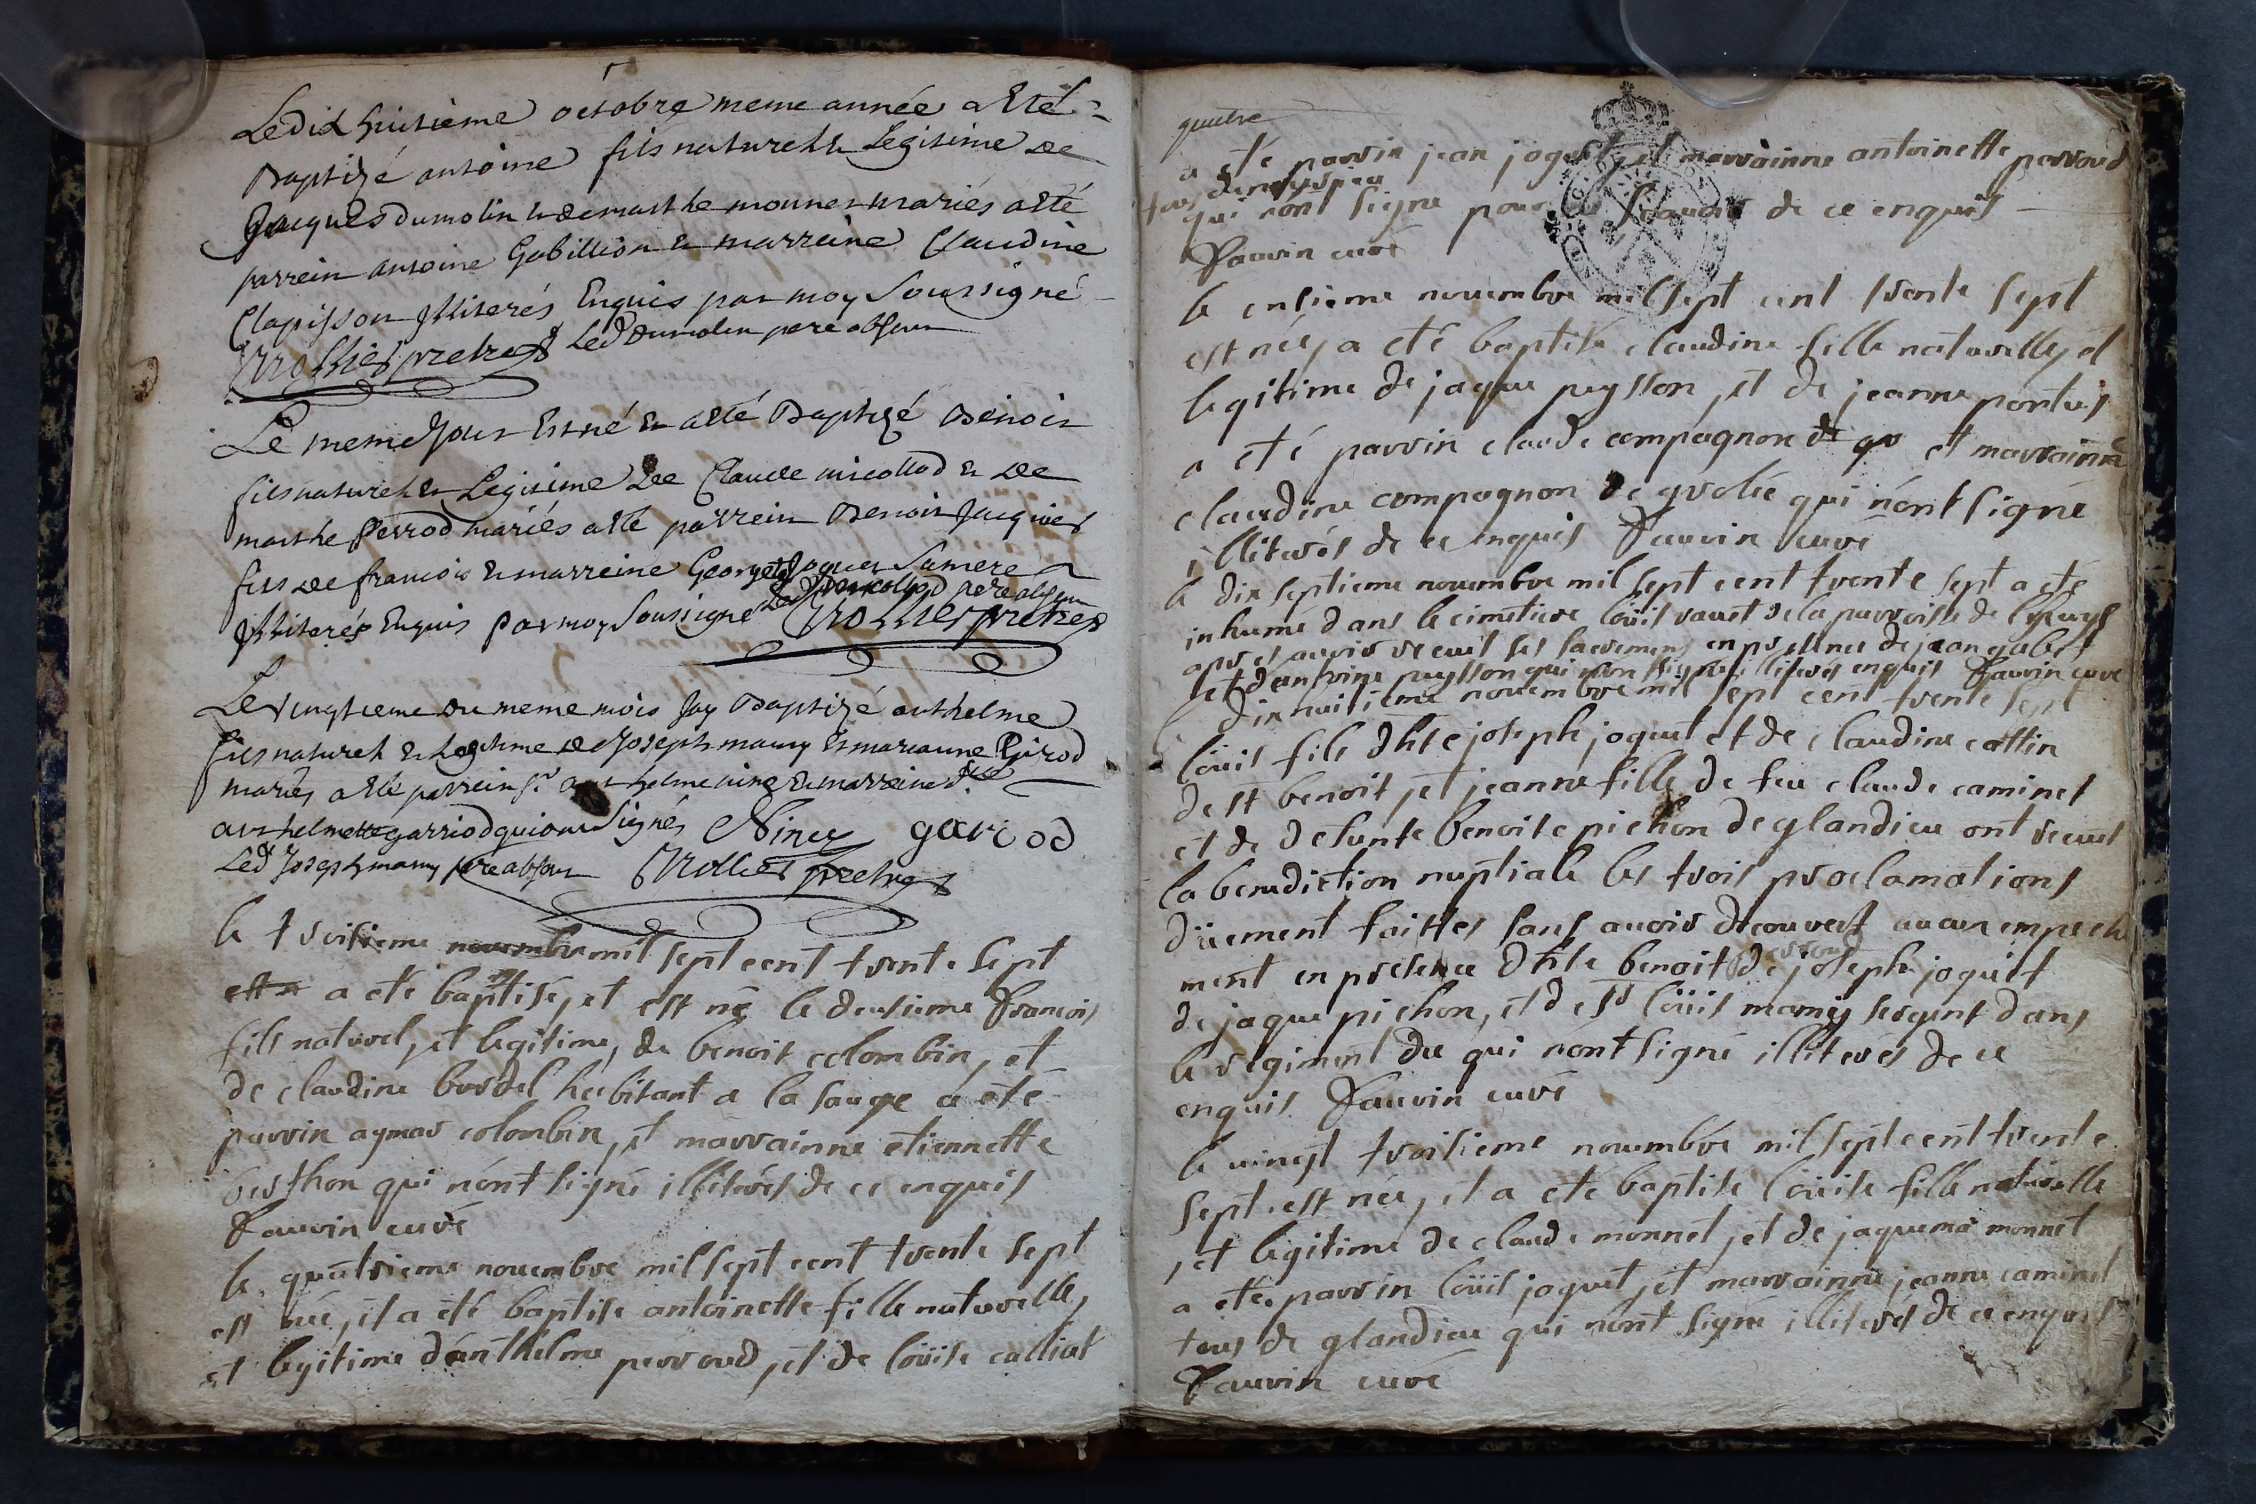 Le dix huitieme octobre meme année a Eté
Baptizé antoine fils naturel & Legitime de
Jacques dumolin & de marthe monnet mariés a Eté
parrein antoine Gabillion & marreine Claudine
Clapisson Illiterés Enquis par moy Soussigné
Trollier pretre Led dumolin pere absent
Le meme Jour Est né & a Eté Baptizé Benoit
fils naturel & Legitime de Claude micollod & de
marthe Perrod mariés a Eté parrein Benoit Jacquier
fils de francois & marreine Georgete Joquet Sa mere
Illiterés Enquis par moy Soussigné Led micollod pere absent Trollier pretre
Le vingtieme du meme mois Jay Baptizé anthelme
fils naturel & Legitime de Joseph mamy & marianne Girod
mariés a Eté parrein sr anthelme nine & marreine
anthelmette garriod qui ont Signés Ninez gariod
Led Joseph mamy pere absent Trollier pretre
le troisieme novembre mil sept cent trente sept
a eté baptisé, et est né le deusieme francois
fils naturel, et legitime, de benoit colombin, et
de claudine bordel habitant a la sauge a eté
parrin aymar colombin, et marrainne etiennette
berthon qui n'ont signé illiterés de ce enquis
Fauvin curé
le quatrieme novembre mil sept cent trente sept
est née, et a été baptise antoinette fille naturelle,
et legitime d'anthelme perroud, et de loüise calliat
quatre
a eté parrin jean joquet, et marrainne antoinette perroud
tous de
qui n'ont signé pour ne scavoir de ce enquis
Fauvin curé
le onsieme novembre mil sept cent trente sept
est née, a eté baptisée claudine fille naturelle, et
legitime de jaque peysson, et de jeanne pontus
a eté parrin claude compagnon de gr et marrainne
claudine compagnon de grolée qui n'ont signé
illiterés de ce enquis Fauvin curé
le dix septieme novembre mil sept cent trente sept a eté
inhumé dans le cimetiere loüis vauet de la parroisse de
apres avoir receuit ses sacremens en presence de jean gabet
et d'antoine peysson qui n'ont signé illiterés enquis Fauvin curé
le dix huitieme novembre mil sept cent trente sept
loüis fils d'hte joseph joquet et de claudine cottin
de st benoit, et jeanne fille de feu claude caminet
et de defunte benoite pichon de glandieu ont receut
la benediction nuptiale les trois proclamations
düement faittes sans avoir decouvert aucun empeche
ment en presence d'hte benoit de joseph joquet
de jaque pichon, et de sr loüis mamy sergent dans
le regiment du qui n'ont signé illiterés de ce
enquis Fauvin curé
le vingt troisieme novembre mil sept cent trente
sept. est née, et a eté baptise loüise fille naturelle
, et legitime de claude monnet, et de jaquema monnet
a eté parrin loüis joquet, et marrainne jeanne caminet
tous de glandieu qui n'ont signé illiterés de ce enquis
Fauvin curé